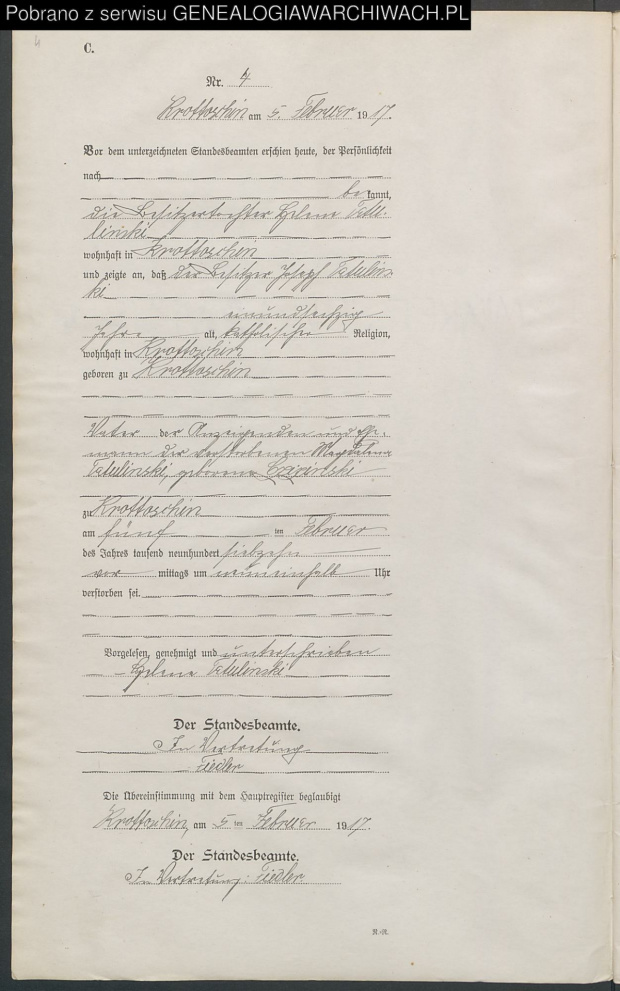 Pobrano z serwisu GENEALOGIAWARCHIWACH.PL
4
C.
Nr. 4
Krottoschin am 5. Februar 1917.
Vor dem unterzeichneten Standesbeamten erschien heute, der Persönlichkeit
nach
be kannt,
die Besitzertochter Helene Tatu-
linski
wohnhaft in Krottoschin
und zeigte an, daß der Besitzer Joseph Tatulins
ki
einundsechzig
Jahre alt, katholischer Religion,
wohnhaft in Krottoschin
geboren zu Krottoschin
Vater der Anzeigenden und Ehe-
mann der verstorbenen Magdalena
Tatulinski, geborene
zu Krottoschin
am fünf ten Februar
des Jahres tausend neunhundert siebzehn
vor mittags um neuneinhalb Uhr
verstorben sei.
Vorgelesen, genehmigt und unterschrieben
Helene Tatulinski
Der Standesbeamte.
In Vertretung
Fiedler
Die Übereinstimmung mit dem Hauptregister beglaubigt
Krottoschin, am 5 ten Februar 1917.
Der Standesbeamte.
In Vertretung: Fiedler
R.-R.